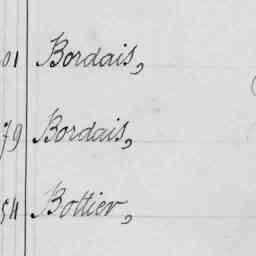 01 Bordais,
79 Bordais,
54 Bottier,